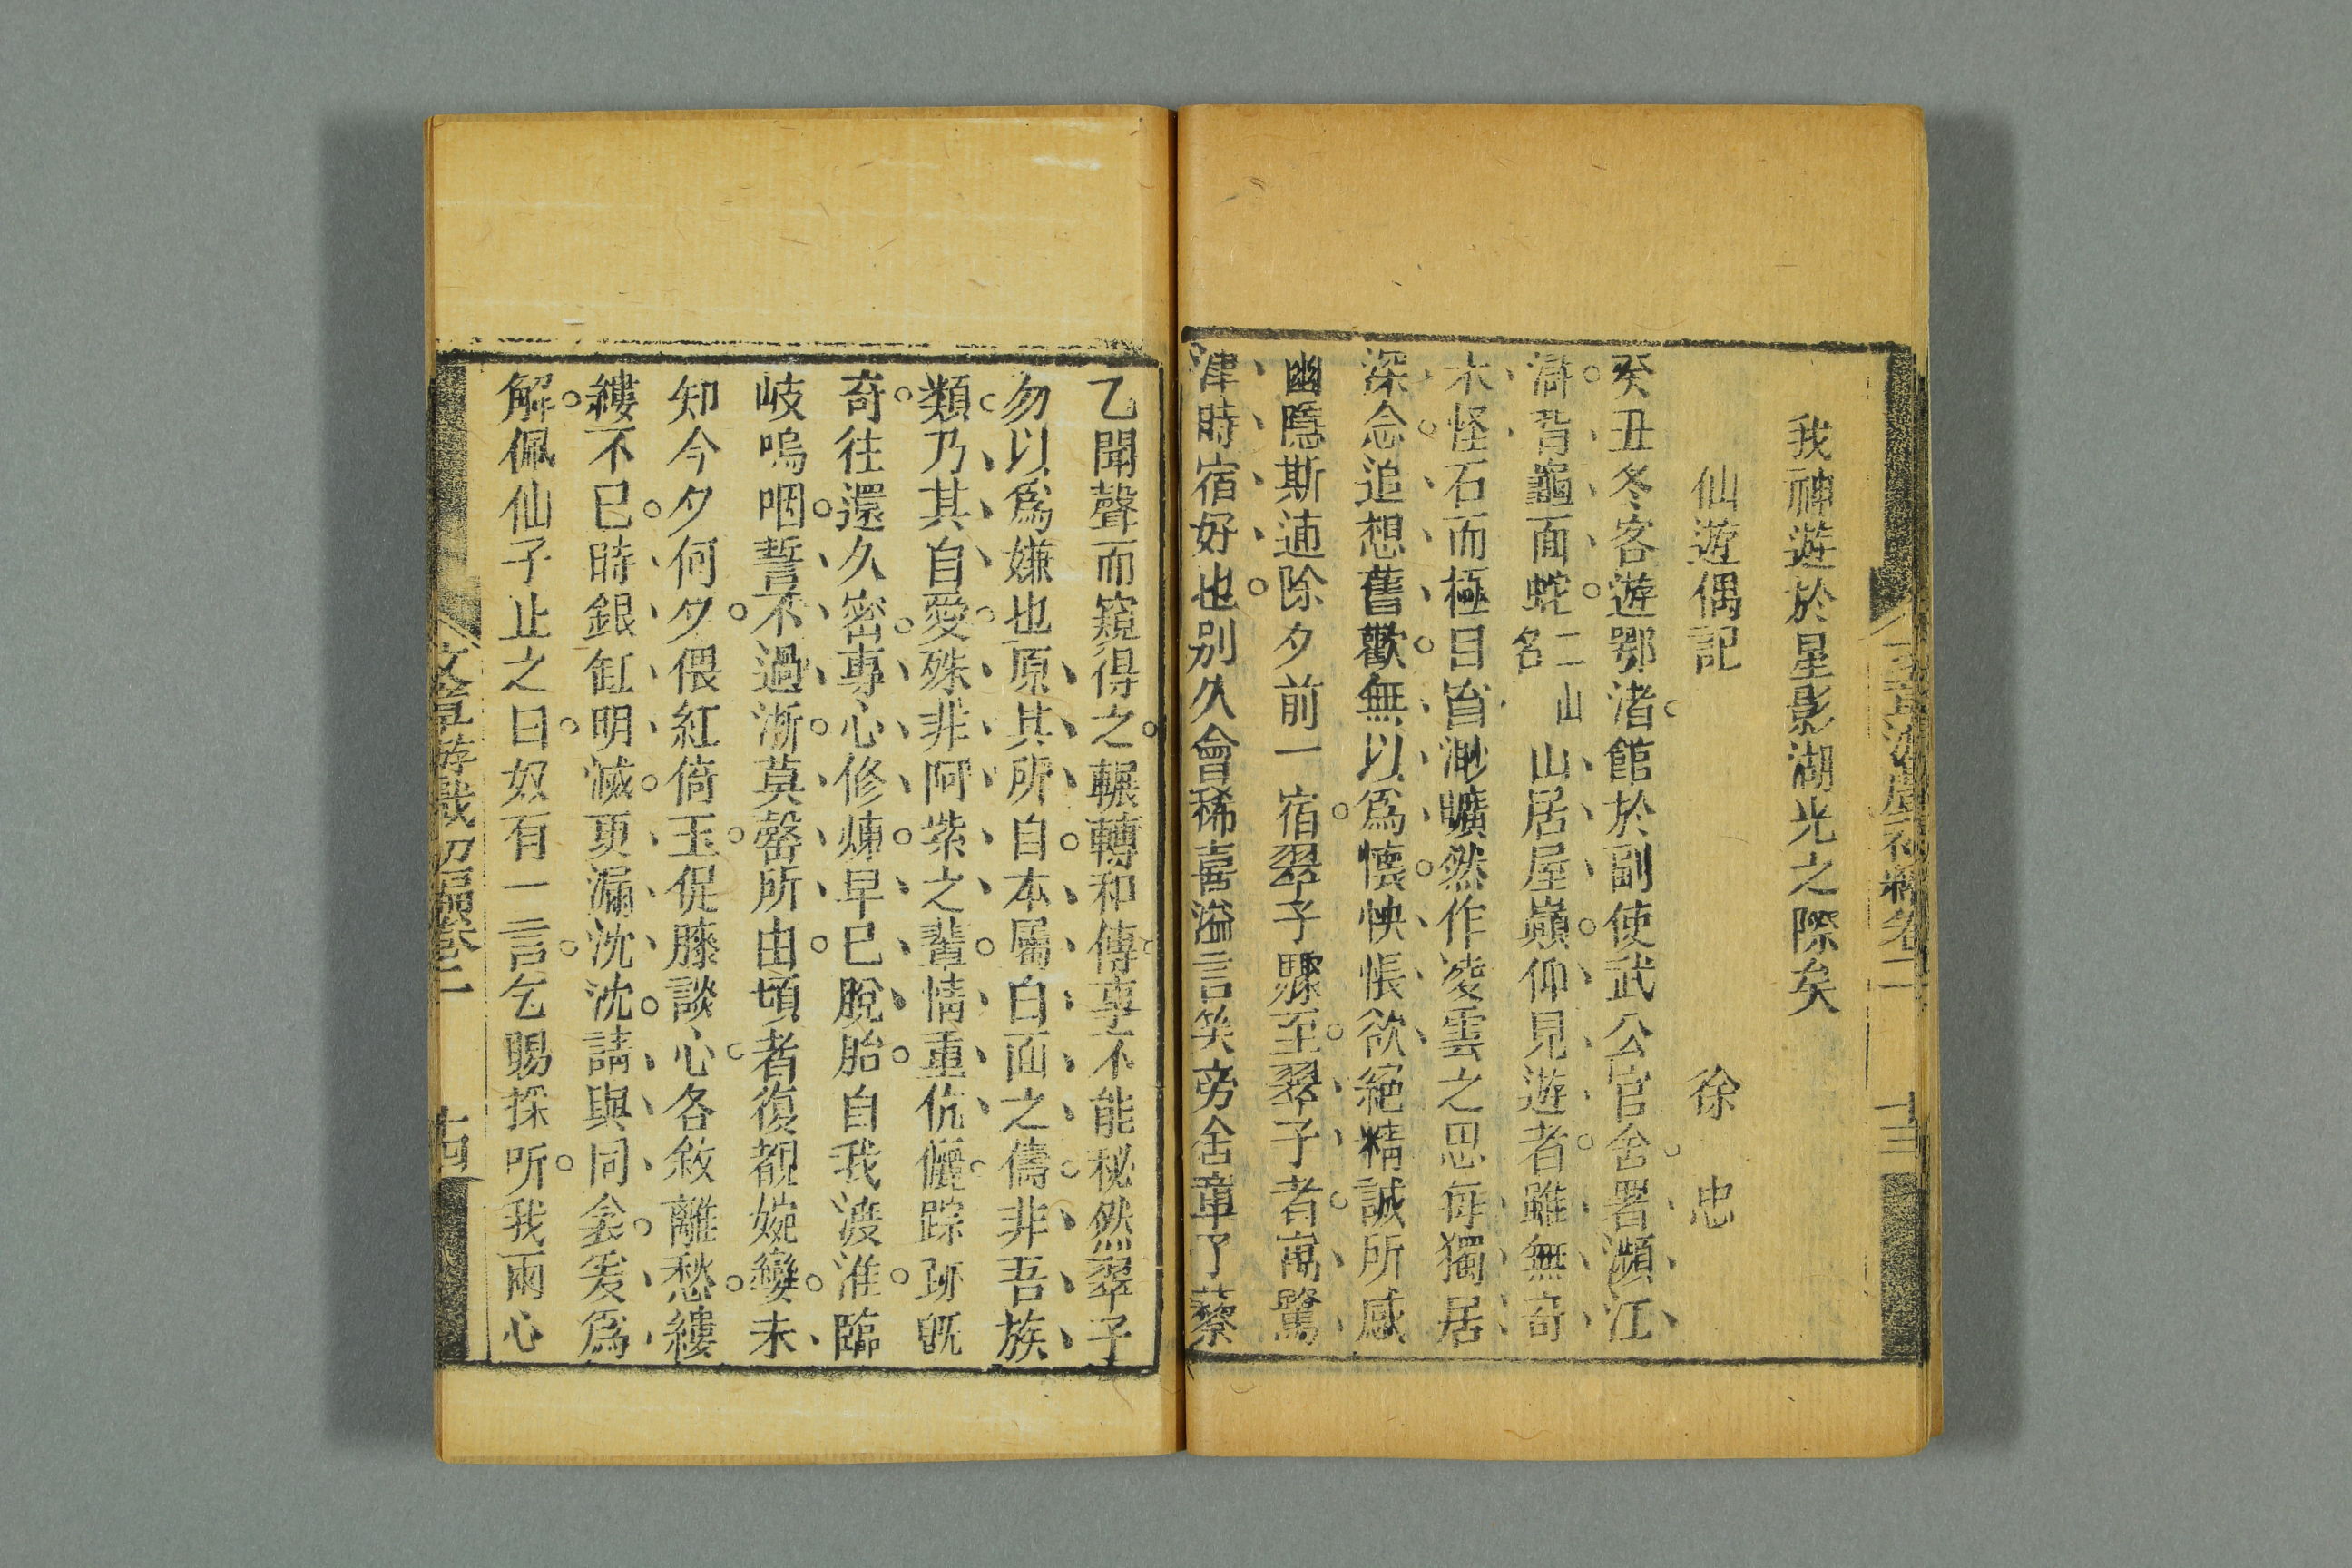 我神遊於星影湖光之際矣
仙遊偶記 徐忠
癸丑冬客遊鄂渚館於副使武公官舍署瀕江
滸背龜面蛇二山名山居屋巔仰見遊者雖無奇
木怪石而極目眢渺曠然作凌雲之思每獨居
深念追想舊歡無以爲懷怏悵欲絕精誠所感
幽隱斯通除夕前一宿翠子驟至翠子者寓鷺
津時宿好也别久會稀喜溢言笑旁舍章丁蔡
乙聞聲而窺得之輾轉和傳事不能秘然翠子
勿以爲嫌也原其所自本屬白面之儔非吾族
類乃其自愛殊非阿紫之輩情重伉儷踪跡旣
奇往還久密專心修煉早已脫胎自我渡淮臨
岐嗚咽誓不過浙莫罄所由頃者復覩婉孌未
知今夕何夕偎紅倚玉促膝談心各敘離愁縷
縷不已時銀缸明滅更漏沈沈請與同衾爰爲
解佩仙子止之曰奴有一言乞賜採听我兩心
文章游戲初編卷二 十三
文章游戲初編卷二 十四